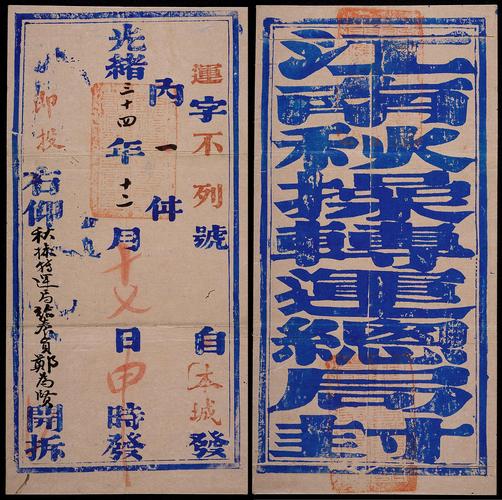 江南秋操轉運總局封
運字不列號自本城發
內一件
光緒三十四年十二月十七日申時發
即投
右仰秋操轉運局委員鄭為賢開拆